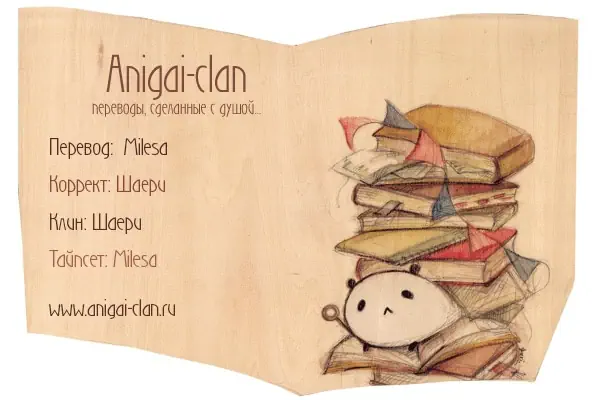 Anigai-clan
переводы, сделанные с душой...
Перевод: Milesa
Коррект: Шаери
Клин: Шаери
Тайпсет: Milesa
www.anigai-clan.ru